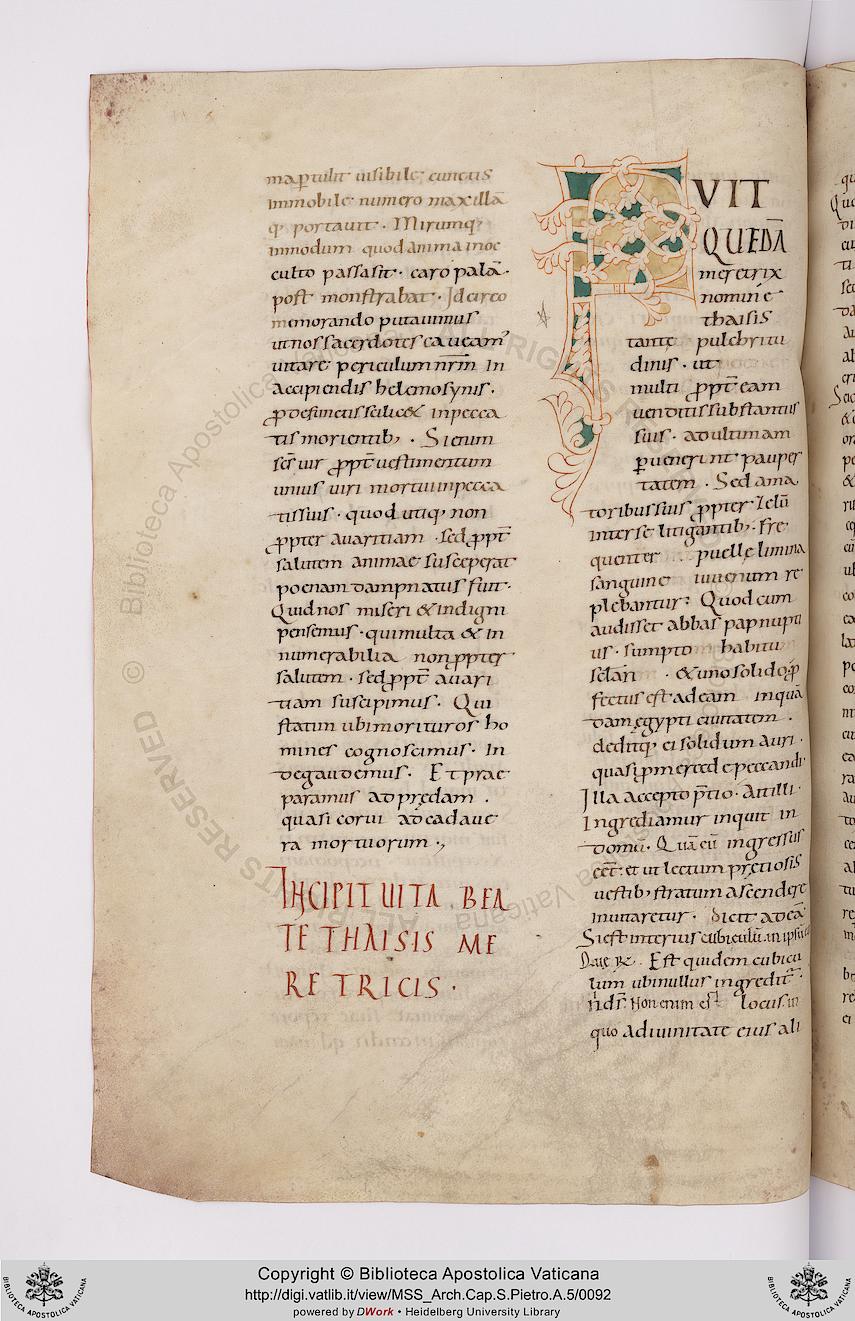 map̄tulit uisibile; cunctis
Immobile numero maxillā
q; portauit. Mirumq;
inmodum quod anima inoc
culto passasit. caro palā.
post monstrabat. Idcirco
memorando putauimus
ut nos sacerdotes caueam'
uitare periculum nr̄m In
accipiendis helemosynis.
ꝓ defunctis scilic& inpecca
tis morientib;. Si enim
sc̄s uir ꝓpt̄ uestimentum
unius uiri mortui inpecca
tis suis. quod utiq; non
ꝓpter auaritiam. sed ꝓpt̄
salutem animae susceperat
poenam dampnatus fuit.
Quid nos miseri & indigni
pensemus. qui multa & in
numerabilia non ꝓpter
salutem. sed ꝓpt̄ auari
tiam suscipimus. Qui
statim ubi morituros ho
mines cognoscimus. In
de gaudemus. Et prae
paramus ad prędam.
quasi corui ad cadaue
ra mortuorum.,
INCIPIT UITA BEA
TE THAISIS ME
RETRICIS.
FUIT
QUEDĀ
meretrix
nomine
thaisis
tante pulchritu
dinis. ut
multi ꝓpt̄ eam
uenditis substantiis
suis. ad ultimam
ꝑuenerint pauper
tatem. Sed ama
toribus suis ꝓpter zelū
inter se litigantib;. fre
quenter puelle limina
sanguine iuuenum re
plebantur; Quod cum
audisset abbas papnupti
us. sumpto habitu
sclari. & uno solido ꝓ
fectus est ad eam inqua
dam ęgypti ciuitatem.
deditq; ei solidum auri.
quasi ꝓ mercede peccandi
Illa accepto p̄tio. Ait illi.
Ingrediamur inquit in
domū. Quā cū ingressus
eēt. et ut lectum prętiosis
uestib; stratum ascendere
inuitaretur. dicit ad eā
Si est interius cubiculū. in ipsū
Est quidem cubicu
lum ubi nullus ingredit̄.
Non enim est locus. in
quo a diuinitate eius ali
Copyright © Biblioteca Apostolica Vaticana
http://digi.vatlib.it/view/MSS_Arch.Cap.S.Pietro.A.5/0092
powered by DWork • Heidelberg University Library